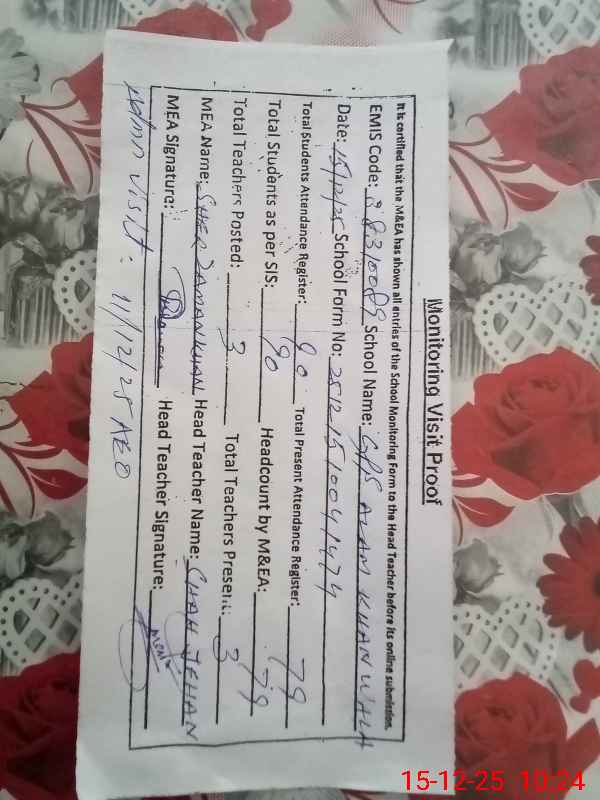 Monitoring Visit Proof
It is certified that the M&EA has shown all entries of the School Monitoring Form to the Head Teacher before its online submission.
EMIS Code: 38310089 School Name: GPS ALAM KHAN WALA
Date: 15/12/25 School Form No: 251215100041474
Total Students Attendance Register: 90 Total Present Attendance Register: 79
Total Students as per SIS: 90 Headcount by M&EA: 79
Total Teachers Posted: 3 Total Teachers Present: 3
MEA Name: SHER ZAMAN KHAN Head Teacher Name: CHAH JEHAN
MEA Signature: Head Teacher Signature:
visit. 11/12/25 AEO
15-12-25 10:24